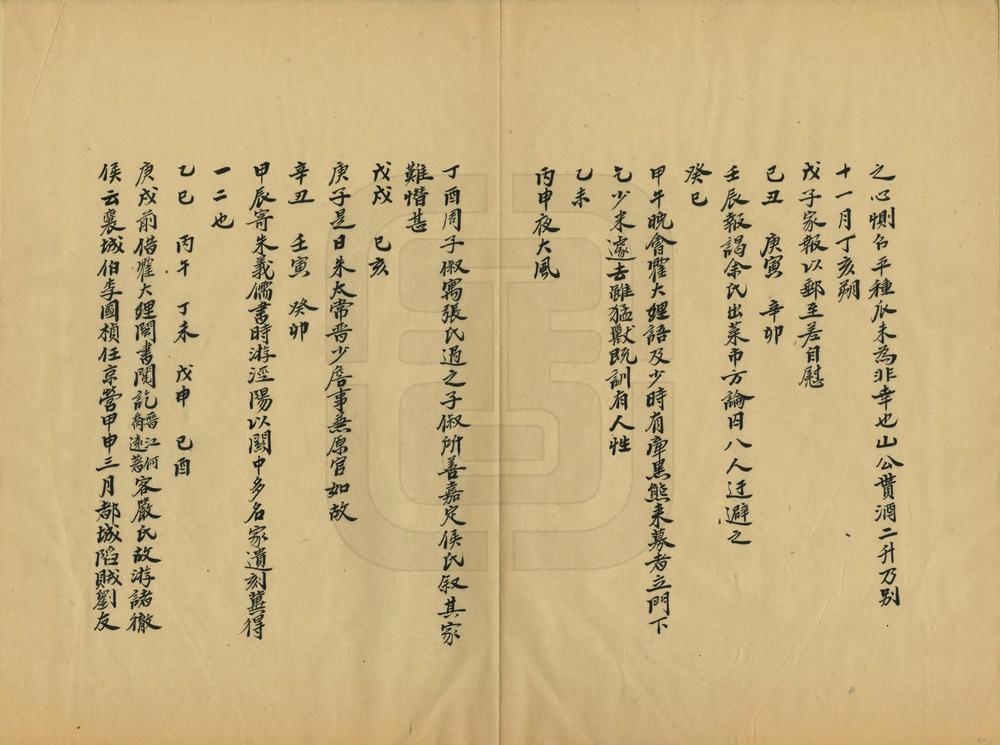 之心惻名平種瓜未為非幸也山公貰酒二升乃别
十一月丁亥朔
戊子家報以郵至差自慰
己丑　庚寅　辛卯
壬辰報謁余氏出菜市方論囚八人迂避之
癸巳
甲午晚會霍大理語及少時有庫黑熊来募者立門下
乞少米遽去雖猛獸既訓有人性
乙未
丙申夜大風
丁酉周子俶寓張氏過之子俶所善嘉定侯氏叙其家
難憯甚
戊戌　己亥
庚子是日朱太常晋少詹事兼原官如故
辛丑　壬寅　癸卯
甲辰寄朱義儒書時游涇陽以關中多名家遺刻冀得
一二也
乙巳　丙午　丁未　戊申　己酉
庚戌前借霍大理閩書閱訖晋江何喬遠著客嚴氏故游諸徹
侯云襄城伯李國楨任京營甲申三月都城陷賊劉友